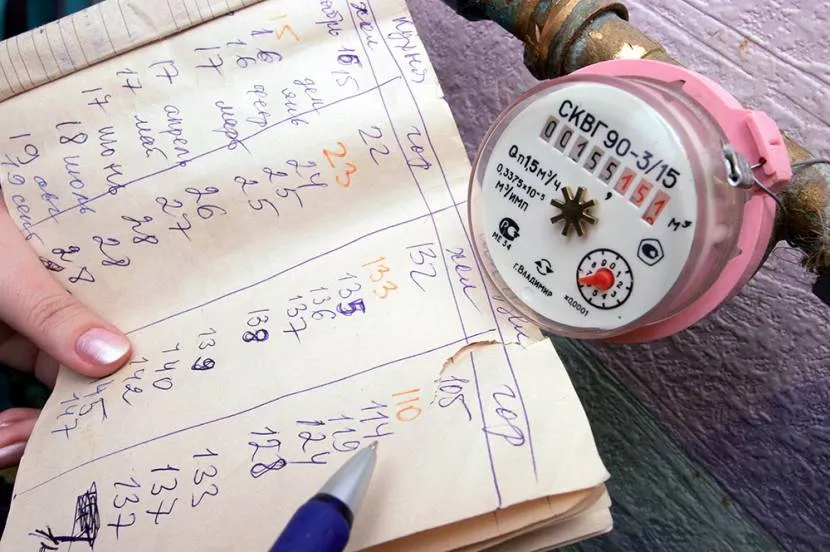 кухня
хол гор хол гор
15 22 132 108
15 23 133 110
дек 16 24 135 114
янв 16 25 136 119
февр 17 25 137 124
март 17 26 138 128
апрель 17 27 139 133
май 17 28 140 137
июнь 18 28 142 137
июль 19 28 145
авг 19 147
сент
СКВГ90-3/15
00155151 м³
Qп1,5м³/ч
0,3375х10⁻⁵
м³/имп
МЕ 34
г.Владимир
х0,0001